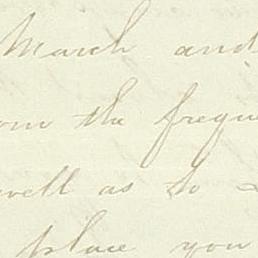 March and
om the frequ
well as to
place you